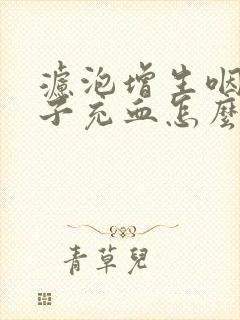 濾泡增生咽
子充血怎麼
青草兒